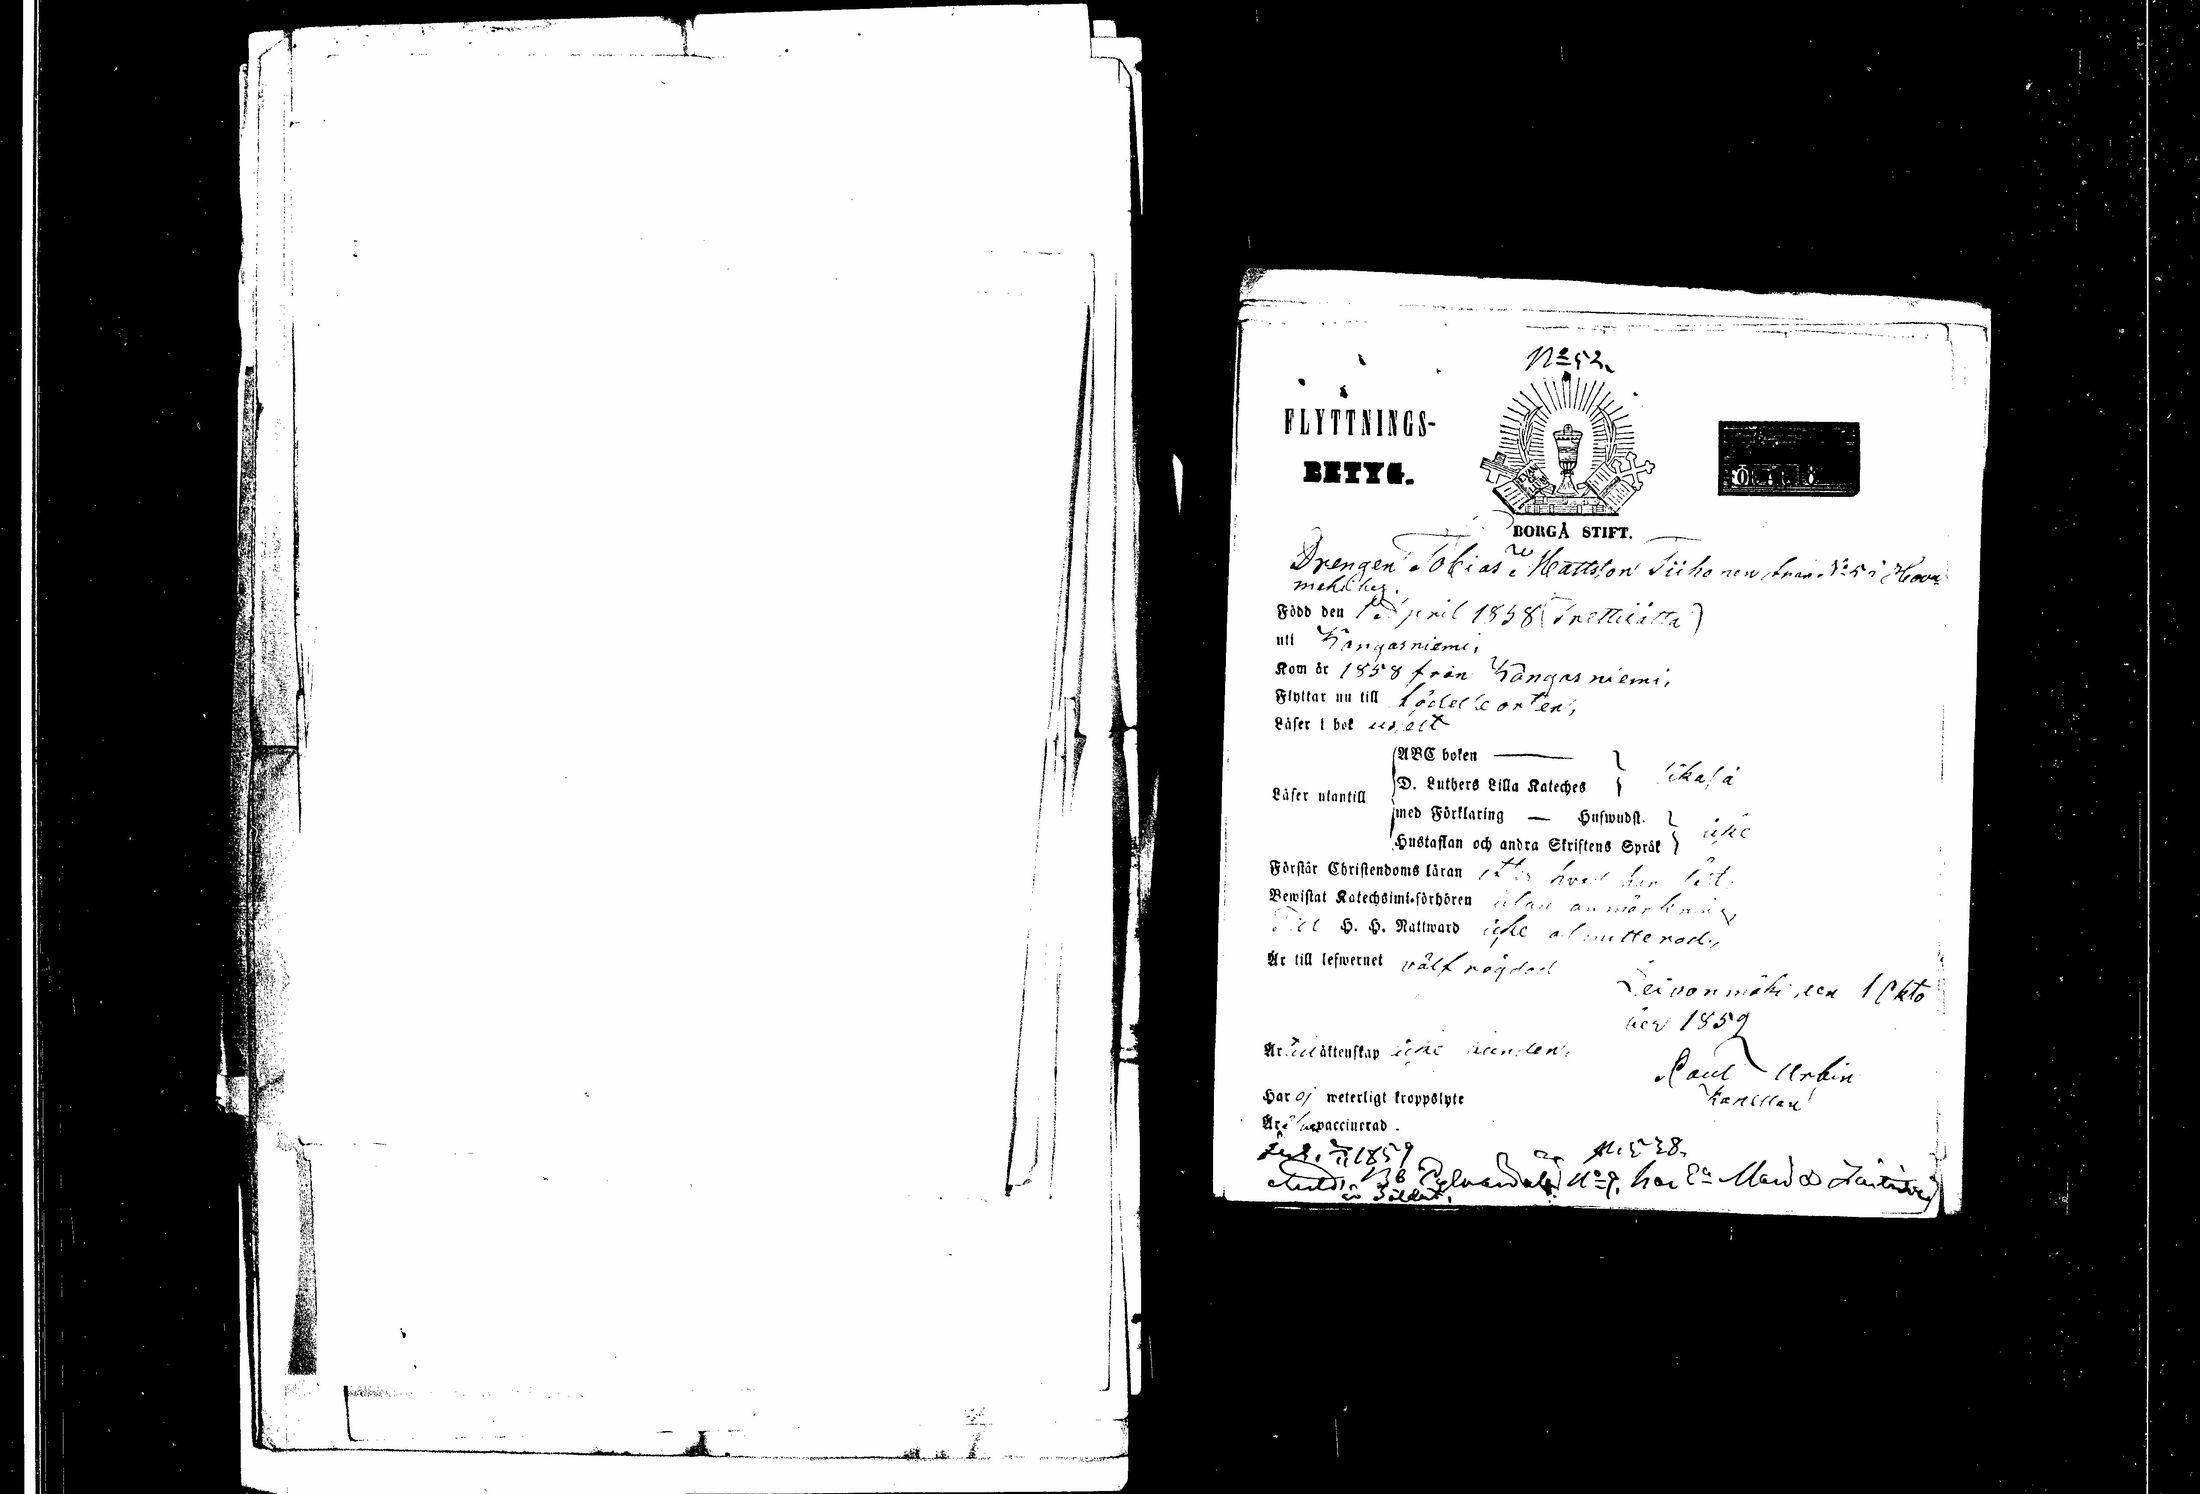 No 52.
FLYTTNINGS-
BETYG.
EVAN
BORGÅ STIFT.
Drengen Tobias Mattsson Tiihonen från No 5 i
Född den April 1838 (Trettiåtta)
uti Kangasniemi,
Kom år 1858 från Kangasniemi,
Flyttar nu till födelseorten,
Läser i bok uselt
Läser utantill
ABC boken
D. Luthers Lilla Kateches
likaså
med Förklaring — Huswudst.
Hustaflan och andra Skriftens Språk
icke
Förstår Christendoms läran
Bewistat Katechsimi-förhören utan anmärkning,
Till H. H. Nattward icke admitterad,
Är till lefwernet välfrägdad
Leivonmäki den 1 Okto
ber 1859
Är till äktenskap icke bunden,
Paul Urbin
Kapellan
Har ej weterligt kroppslyte
Är vaccinerad.
1859
No 9, har